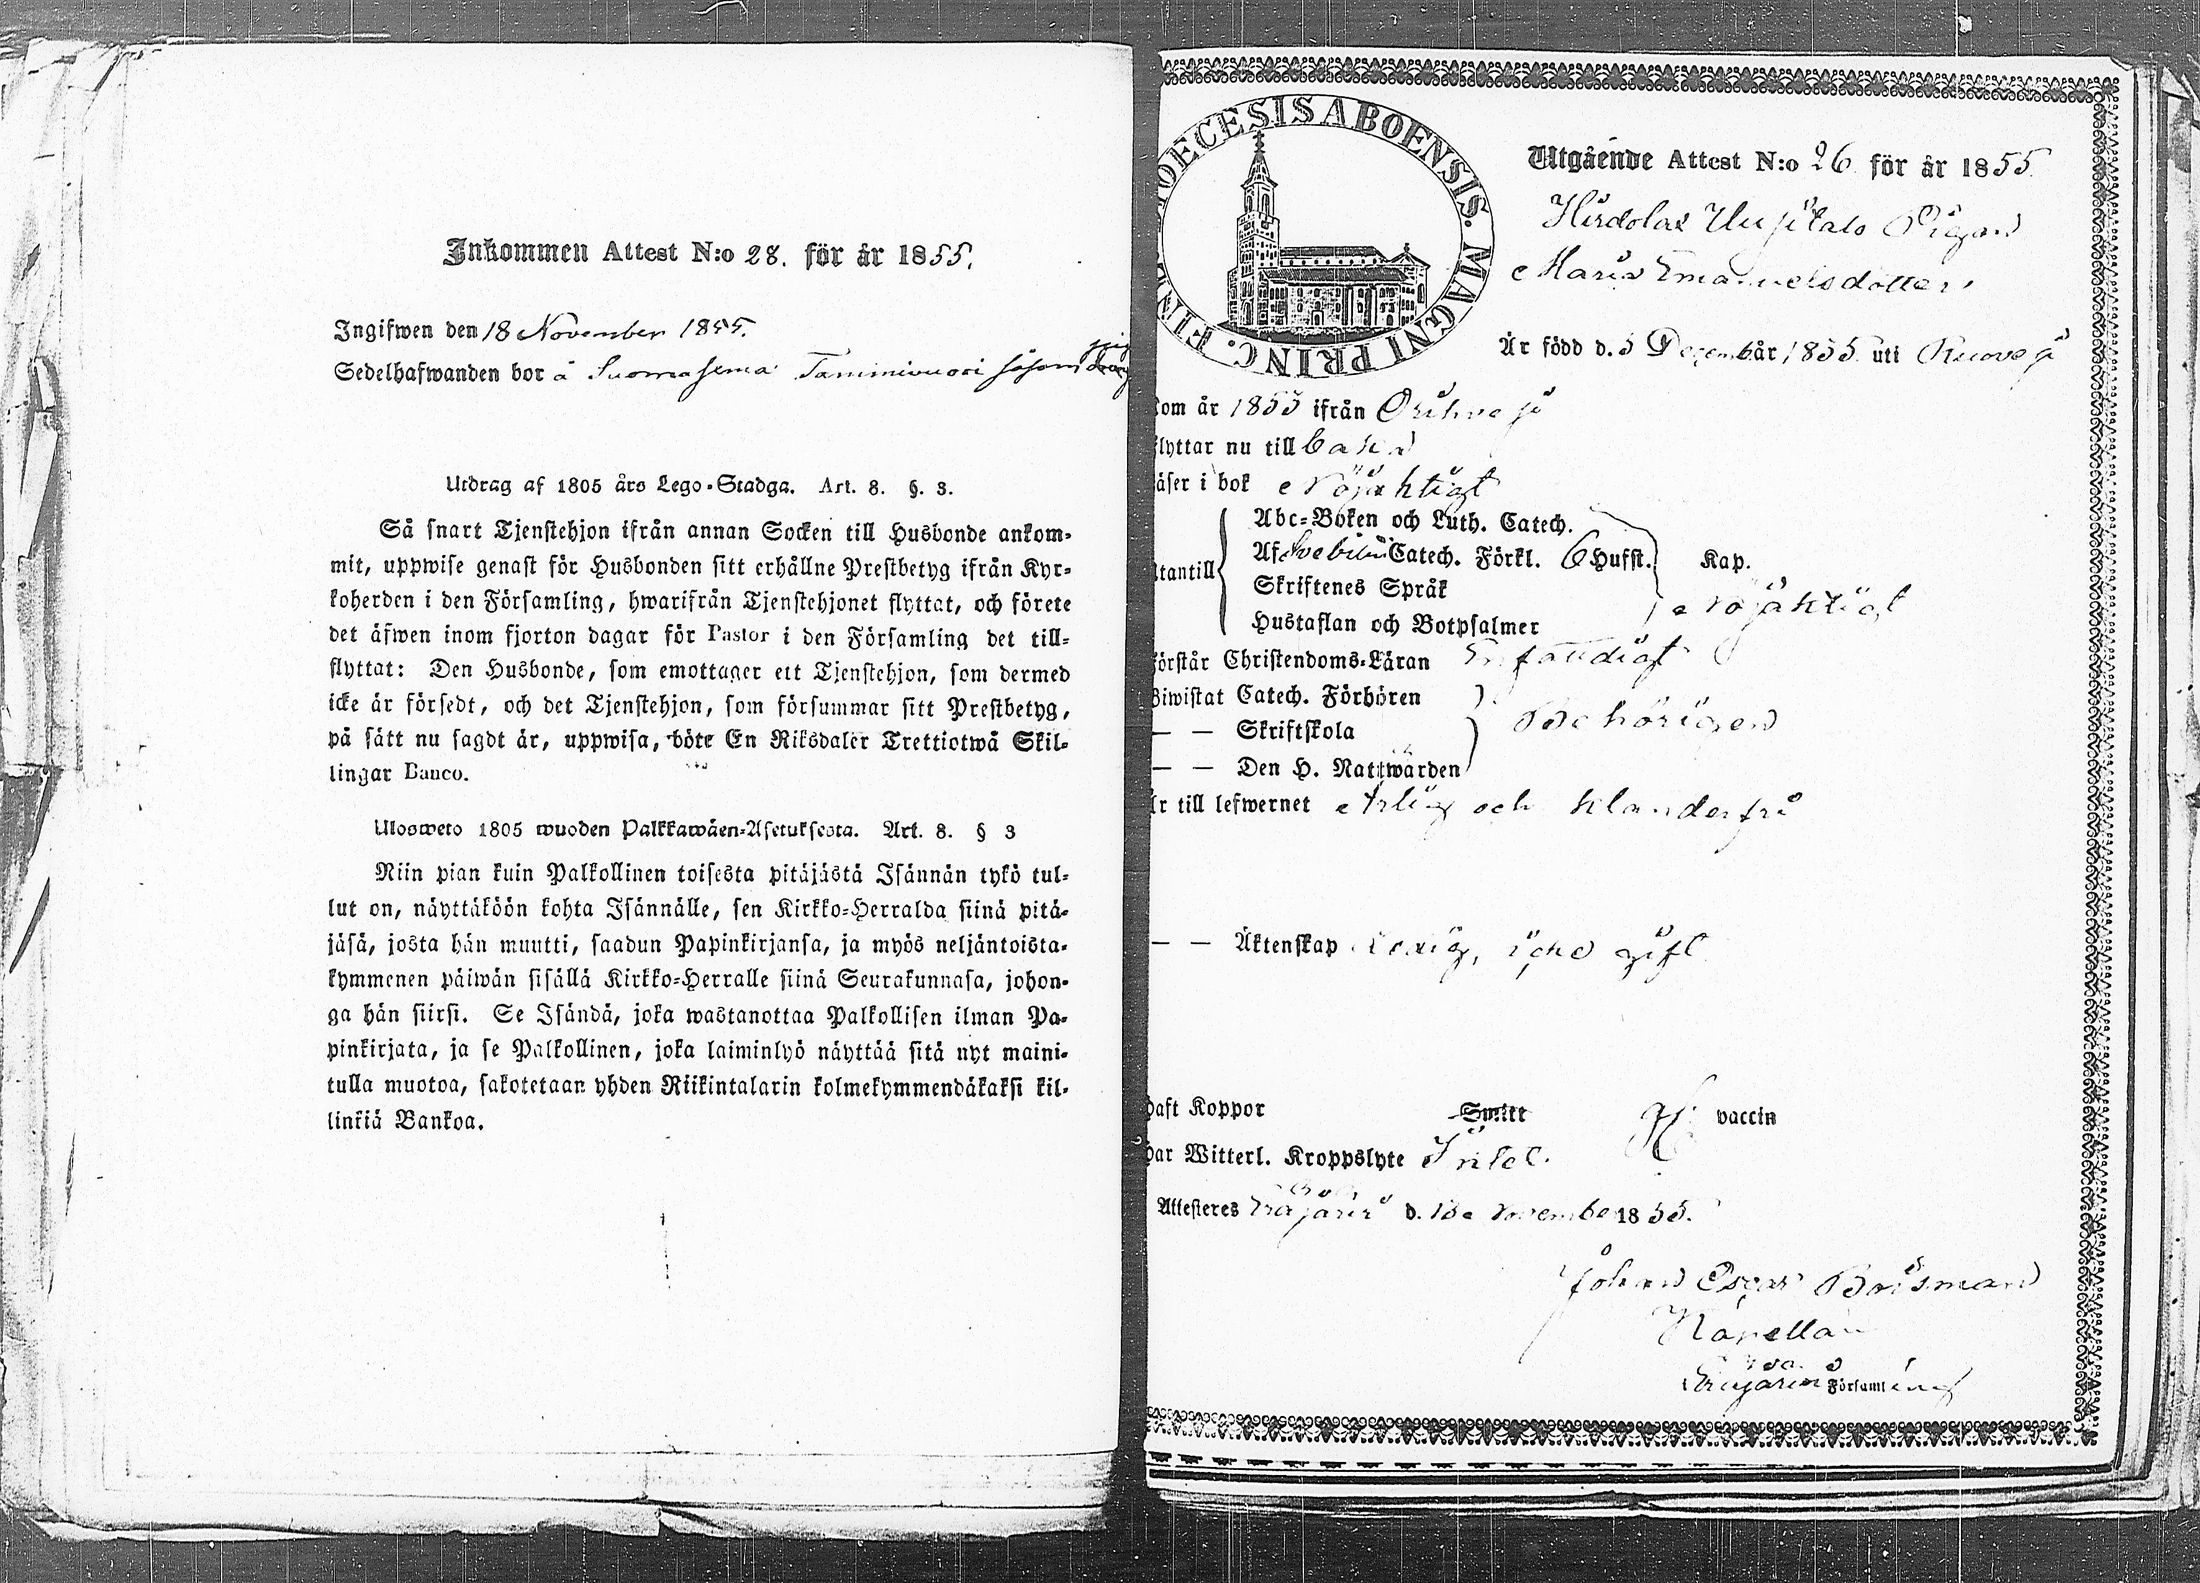 Inkommen Attest N:o 28. för år 1855.
Ingifwen den 18 November 1855.
Sedelhafwanden bor å Suomasema Tammivuori såsom
Utdrag af 1805 års Lego-Stadga. Art. 8. §. 3.
Så snart Tjenstehjon ifrån annan Socken till Husbonde ankom-
mit, uppwise genast för Husbonden sitt erhållne Prestbetyg ifrån Kyr-
koherden i den Församling, hwarifrån Tjenstehjonet flyttat, och förete
det äfwen inom fjorton dagar för Pastor i den Församling det till-
flyttat: Den Husbonde, som emottager ett Tjenstehjon, som dermed
icke är försedt, och det Tjenstehjon, som försummar sitt Prestbetyg,
på sätt nu sagdt är, uppwisa, böte En Riksdaler Trettiotwå Skil-
lingar Banco.
Ulosweto 1805 wuoden Palkkawäen-Asetuksesta. Art. 8. § 3
Niin pian kuin Palkollinen toisesta pitäjästä Isännän tykö tul-
lut on, näyttäköön kohta Isännälle, sen Kirkko-Herralda siinä pitä-
jäsä, josta hän muutti, saadun Papinkirjansa, ja myös neljäntoista-
kymmenen päiwän sisällä Kirkko-Herralle siinä Seurakunnasa, johon-
ga hän siirsi. Se Isändä, joka wastanottaa Palkollisen ilman Pa-
pinkirjata, ja se Palkollinen, joka laiminlyö näyttää sitä nyt maini-
tulla muotoa, sakotetaan yhden Riikintalarin kolmekymmendäkaksi kil-
linkiä Bankoa.
DIOECESIS ABOENSIS. MAGNI PRINC. FINL
Utgående Attest N:o 26 för år 1855
Hirdolax Uusitalo Pigan
Maria Emanuelsdotter
Är född d. 5 Decemb år 1835 uti Ruovesi
kom år 1853 ifrån Orihvesi
flyttar nu till
läser i bok Nöjaktigt
Abc-Boken och Luth. Catech.
Af Svebilii Catech. Förkl. 6 Hufst. Kap.
utantill Skriftenes Språk Nöjaktigt
Hustaflan och Botpsalmer
förstår Christendoms-Läran
Biwistat Catech. Förhören
— — Skriftskola Behörigen
— — Den H. Nattwarden
Är till lefwernet Ärlig och klanderfri
— — Äktenskap Ledig, icke gift
haft Koppor Smitt vaccin
Har Witterl. Kroppslyte Intet.
Attesteres Eräjärvi d. 13 November 1855.
Johan Oscar Brisman
Kapellan
Eräjärvi Församling